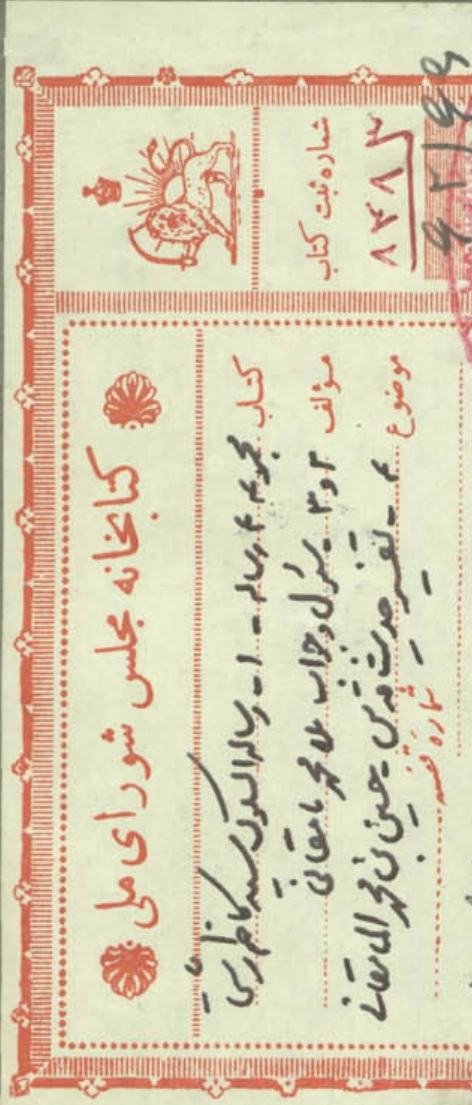 کتابخانه مجلس شورای ملی
کتاب مجموعه ۴ رساله - ۱- رساله السلوک سید کاظم رشتی
مؤلف ۲ و ۳ - سئوال و جواب ملا محمد مامقانی
موضوع ۴ - تفسیر حدیث قدسی حسین بن محمد المامقانی
شماره قفسه
شماره ثبت کتاب
۸۴۸۳
۹۲۱۹۹